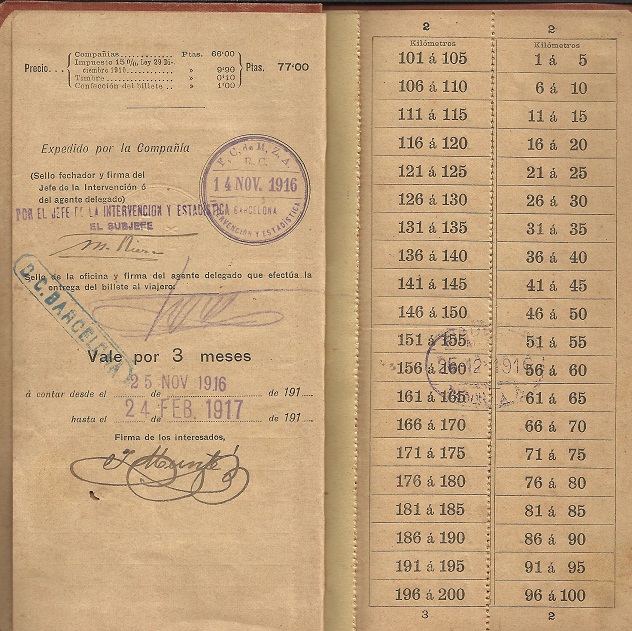 Compañías............ Ptas. 66'00
Impuesto 15 0/0, Ley 29 Di-
ciembre 1910............ » 9'90
Precio... Ptas. 77'00
Timbre............ » 0'10
Confección del billete.. » 1'00
Expedido por la Compañía
(Sello fechador y firma del
Jefe de la Intervención ó
del agente delegado)
F. C. de M. Z. A.
R. C.
14 NOV. 1916
BARCELONA
INTERVENCIÓN Y ESTADÍSTICA
POR EL JEFE DE LA INTERVENCION Y ESTADISTICA
EL SUBJEFE
Sello de la oficina y firma del agente delegado que efectúa la
entrega del billete al viajero:
D. C. BARCELONA
Vale por 3 meses
á contar desde el 25 NOV 1916 de 191
hasta el 24 FEB. 1917 de 191
Firma de los interesados,
2
Kilómetros
101 á 105
106 á 110
111 á 115
116 á 120
121 á 125
126 á 130
131 á 135
136 á 140
141 á 145
146 á 150
151 á 155
156 á 160
161 á 165
166 á 170
171 á 175
176 á 180
181 á 185
186 á 190
191 á 195
196 á 200
3
2
Kilómetros
1 á 5
6 á 10
11 á 15
16 á 20
21 á 25
26 á 30
31 á 35
36 á 40
41 á 45
46 á 50
51 á 55
56 á 60
61 á 65
66 á 70
71 á 75
76 á 80
81 á 85
86 á 90
91 á 95
96 á 100
2